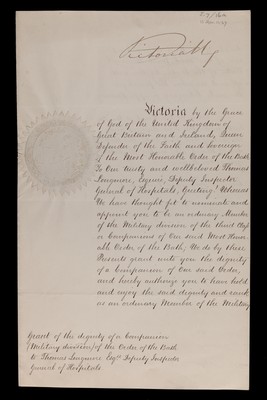 Victoria R
Victoria by the Grace
of God of the United Kingdom of
Great Britain and Ireland, Queen
Defender of the Faith and Sovereign
of the Most Honorable Order of the Bath
To Our trusty and wellbeloved Thomas
Longmore, Esquire, Deputy Inspector
General of Hospitals, Greeting! Whereas
We have thought fit to nominate and
appoint you to be an ordinary Member
of the Military division of the third Class
or Companions of Our said Most Honor-
able Order of the Bath, We do by these
Presents grant unto you the dignity
of a Companion of Our said Order,
and hereby authorize you to have hold
and enjoy the said dignity and rank
as an ordinary Member of the Military
Grant of the dignity of a Companion
(Military division) of the Order of the Bath
to Thomas Longmore Esqre Deputy Inspector
General of Hospitals